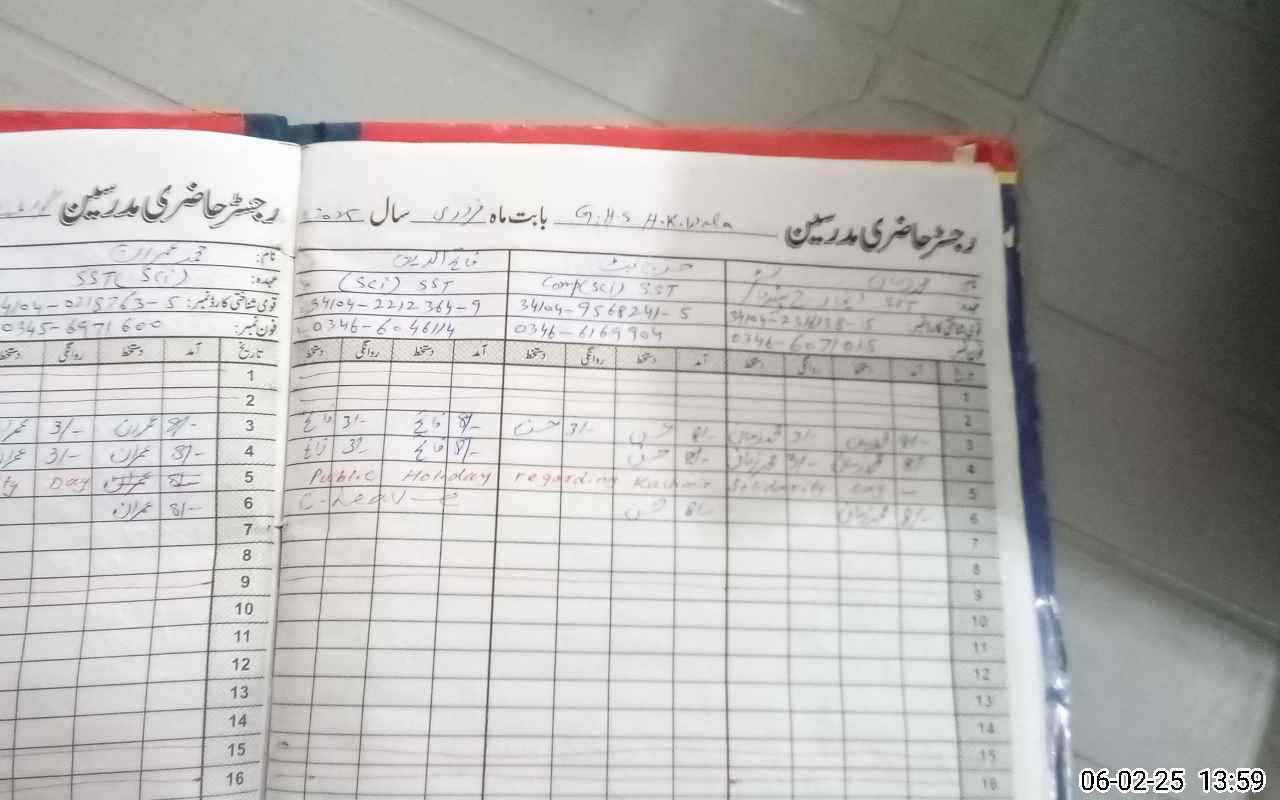 رجسٹر حاضری مدرسین G.H.S H.K.Wala بابت ماہ فروری سال
نام
عہدہ SST
قومی شناختی کارڈ نمبر
فون نمبر 0346-6071015
حسن بٹ
Comp(Sci) SST
34104-9568241-5
0346-6169904
(Sci) SST
34104-2212364-9
0346-6046114
تاریخ آمد دستخط روانگی دستخط آمد دستخط روانگی دستخط آمد دستخط روانگی دستخط
1
2
3 8/- 3/- 8/- حسن 3/- حسن 8/- 3/-
4 8/- 3/- 8/- حسن 8/- 3/-
Public Holiday regarding Kashmir Solidarity Day - 5
6 8/- 8/- حسن C-Leave
7
8
9
10
11
12
13
14
15
16
رجسٹر حاضری مدرسین
نام: محمد عمران
عہدہ: SST (Sci)
قومی شناختی کارڈ نمبر:
فون نمبر: 0345-6971600
تاریخ آمد دستخط روانگی
1
2
3 8/- عمران 3/-
4 8/- عمران 3/-
5 Day
6 8/- عمران
7
8
9
10
11
12
13
14
15
16
06-02-25 13:59